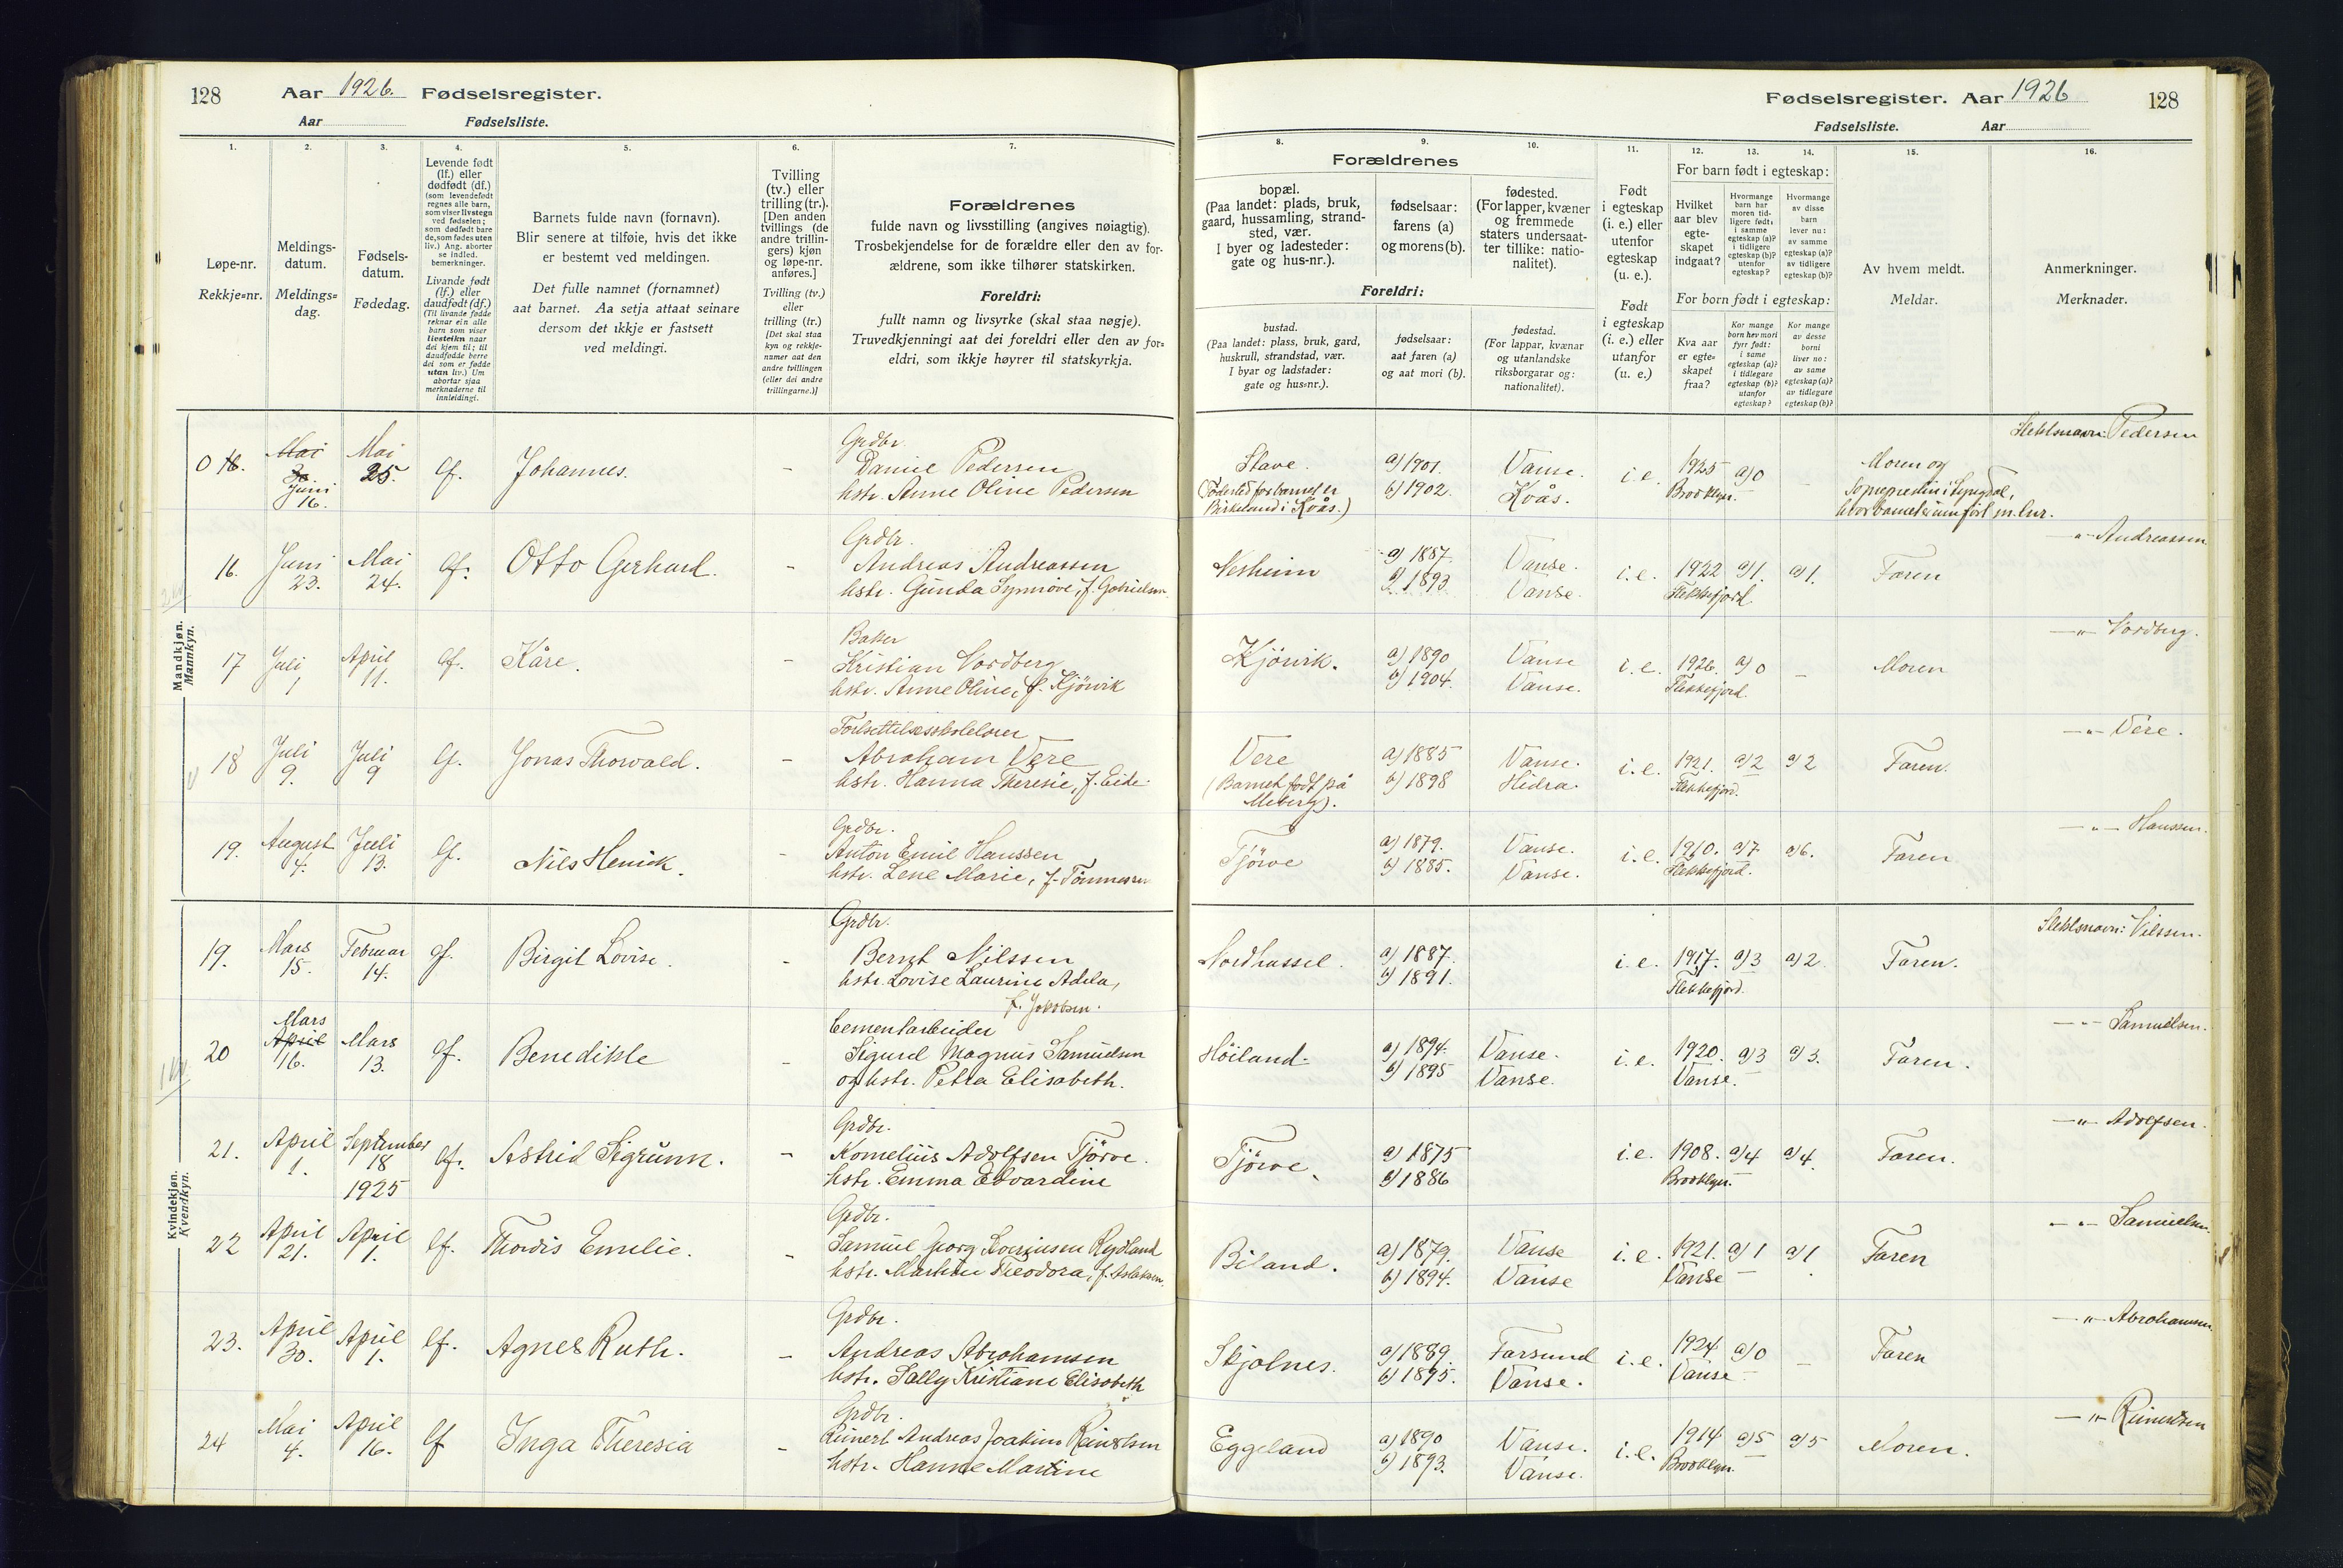 128 Aar 1926. Fødselsregister.
Aar Fødselsliste.
1. 2. 3. 4. 5. 6. 7.
Løpe-nr.
Rekkje=nr.
Meldings-
datum.
Meldings=
dag.
Fødsels-
datum.
Fødedag.
Levende født
(lf.) eller
dødfødt (df.)
(som levendefødt
regnes alle barn,
som viser livstegn
ved fødselen;
som dødfødt bare
de, som fødes uten
liv.) Ang. aborter
se indled.
bemerkninger.
Livande født
(lf.) eller
daudfødt (df.)
(Til livande fødde
reknar ein alle
barn som viser
livsteikn naar
dei kjem til; til
daudfødde berre
dei som er fødde
utan liv.) Um
abortar sjaa
merknaderne til
innleidingi.
Barnets fulde navn (fornavn).
Blir senere at tilføie, hvis det ikke
er bestemt ved meldingen.
Det fulle namnet (fornamnet)
aat barnet. Aa setja attaat seinare
dersom det ikkje er fastsett
ved meldingi.
Tvilling
(tv.) eller
trilling (tr.).
[Den anden
tvillings (de
andre trillin-
gers) kjøn
og løpe-nr.
anføres.]
Tvilling (tv.)
eller
trilling (tr.)
[Det skal staa
kyn og rekkje-
numer aat den
andre tvillingen
(eller dei andre
trillingarne.)]
Forældrenes
fulde navn og livsstilling (angives nøiagtig).
Trosbekjendelse for de forældre eller den av for-
ældrene, som ikke tilhører statskirken.
Foreldri:
fullt namn og livsyrke (skal staa nøgje).
Truvedkjenningi aat dei foreldri eller den av for=
eldri, som ikkje høyrer til statskyrkja.
Mandkjøn.
Mannkyn.
0 16. Mai 30 Juni 16. Mai 25. lf. Johannes. -
Grdbr.
Daniel Pedersen
hstr. Anne Oline Pedersen
16. Juni 23. Mai 24. lf. Otto Gerhard. -
Grdbr.
Andreas Andreassen
hstr. Gunda Synnøve, f. Gabrielsen.
17 Juli 1 April 11. lf. Kåre. -
Baker
Kristian Nordberg
hstr. Anne Oline, f. Kjörvik
18 Juli 9. Juli 9 lf. Jonas Thorvald. -
Fortsettelsesskolelærer
Abraham Vere
hstr. Hanna Theresie, f. Eide.
19. August 4. Juli 13. lf. Nils Henrik. -
Grdbr.
Anton Emil Hanssen
hstr. Lene Marie, f. Tönnessen
Kvindekjøn.
Kvendkyn.
19. Mars 15. Februar 14. lf. Birgit Lovise. -
Grdbr.
Bernt Nilssen
hstr. Lovise Laurine Adela,
f. Jakobsen.
20 Mars April 16. Mars 13. lf. Benedikte -
Cementarbeider
Sigurd Magnus Samuelsen
og hstr. Petra Elisabeth.
21. April 1. September 18 1925 lf. Astrid Sigrunn. -
Grdbr.
Kornelius Adolfsen Tjörve.
hstr. Emma Edvardine
22 April 21. April 1. lf. Thordis Emelie. -
Grdbr.
Samuel Georg
hstr. Theodora, f. Aslaksen.
23. April 30. April 1. lf. Agnes Ruth. -
Grdbr.
Andreas Abrahamsen
hstr. Sally Kristiane Elisabeth
24 Mai 4. April 16. lf Inga Theresia -
Grdbr.
Reinert Andreas Joakim Reinertsen
hstr. Hanne Martine
Fødselsregister. Aar 1926 128
Fødselsliste. Aar
8. 9. 10. 11. 12. 13. 14. 15. 16.
Forældrenes
bopæl.
(Paa landet: plads, bruk,
gaard, hussamling, strand-
sted, vær.
I byer og ladesteder:
gate og hus-nr.).
fødselsaar:
farens (a)
og morens (b).
fødested.
(For lapper, kvæner
og fremmede
staters undersaat-
ter tillike: natio-
nalitet).
Foreldri:
bustad.
(Paa landet: plass, bruk, gard,
huskrull, strandstad, vær.
I byar og ladstader:
gate og hus=nr.).
fødselsaar:
aat faren (a)
og aat mori (b).
fødestad.
(For lappar, kvænar
og utanlandske
riksborgarar og:
nationalitet).
Født
i egteskap
(i. e.) eller
utenfor
egteskap
(u. e.).
Født
i egteskap
(i. e.) eller
utanfor
(u. e.)
For barn født i egteskap:
Hvilket
aar blev
egte-
skapet
indgaat?
Hvormange
barn har
moren tid-
ligere født:
i samme
egteskap (a)?
i tidligere
egteskap (b)?
utenfor
egteskap?
Hvormange
av disse
barn
lever nu:
av samme
egteskap (a)?
av tidligere
egteskap (b)?
For born født i egteskap:
Kva aar
er egte=
skapet
fraa?
Kor mange
born hev mori
fyrr født:
i same
egteskap (a)?
i tidlegare
egteskap (b)?
utanfor
egteskap?
Kor mange
av desse
borni
liver no:
av same
egteskap (a)?
av tidlegare
egteskap (b)?
Av hvem meldt.
Meldar.
Anmerkninger.
Merknader.
Slektsnavn: Pedersen
Stave. a) 1901. b) 1902. Vanse. Kvås. i.e. 1925 Brooklyn. a) 0 -
(Fødested for barnet er
Birkeland i Kvås.)
Moren og
Sognepresten i Lyngdal,
hvor barnet er innført m. lnr.
-"- Andreassen
Nesheim a) 1887. b) 1893 Vanse. Vanse. i.e. 1922 Flekkefjord a) 1. a) 1. Faren
-"- Nordberg.
Kjörvik. a) 1890 b) 1904. Vanse Vanse. i.e. 1926. Flekkefjord. a) 0 - Moren
-"- Vere.
Vere a) 1885 b) 1898 Vanse. Hidra. i.e. 1921. Flekkefjord. a) 2 a) 2 Faren.
(Barnet født på
Meberg).
-"- Hanssen.
Tjörve a) 1879. b) 1885. Vanse. Vanse. i.e. 1910. Flekkefjord. a) 7. a) 6. Faren
Slektsnavn: Nilssen.
Nordhassel. a) 1887. b) 1891. i.e. 1917. Flekkefjord. a) 3 a) 2 Faren.
-"- Samuelsen.
Höiland. a) 1894. b) 1895 Vanse. Vanse. i.e. 1920. Vanse. a) 3 a) 3. Faren.
-"- Adolfsen.
Tjörve. a) 1875 b) 1886 i.e. 1908. Brooklyn. a) 4 a) 4. Faren.
-"- Samuelsen.
Biland. a) 1879. b) 1894. Vanse Vanse i.e. 1921. Vanse a) 1 a) 1 Faren
-"- Abrahamsen.
Skjolnes. a) 1889. b) 1895. Farsund Vanse. i.e. 1924 Vanse a) 0 - Faren
-"- Reinertsen
Eggeland a) 1890 b) 1893. Vanse. Vanse. i.e. 1914 Brooklyn. a) 5 a) 5 Moren.